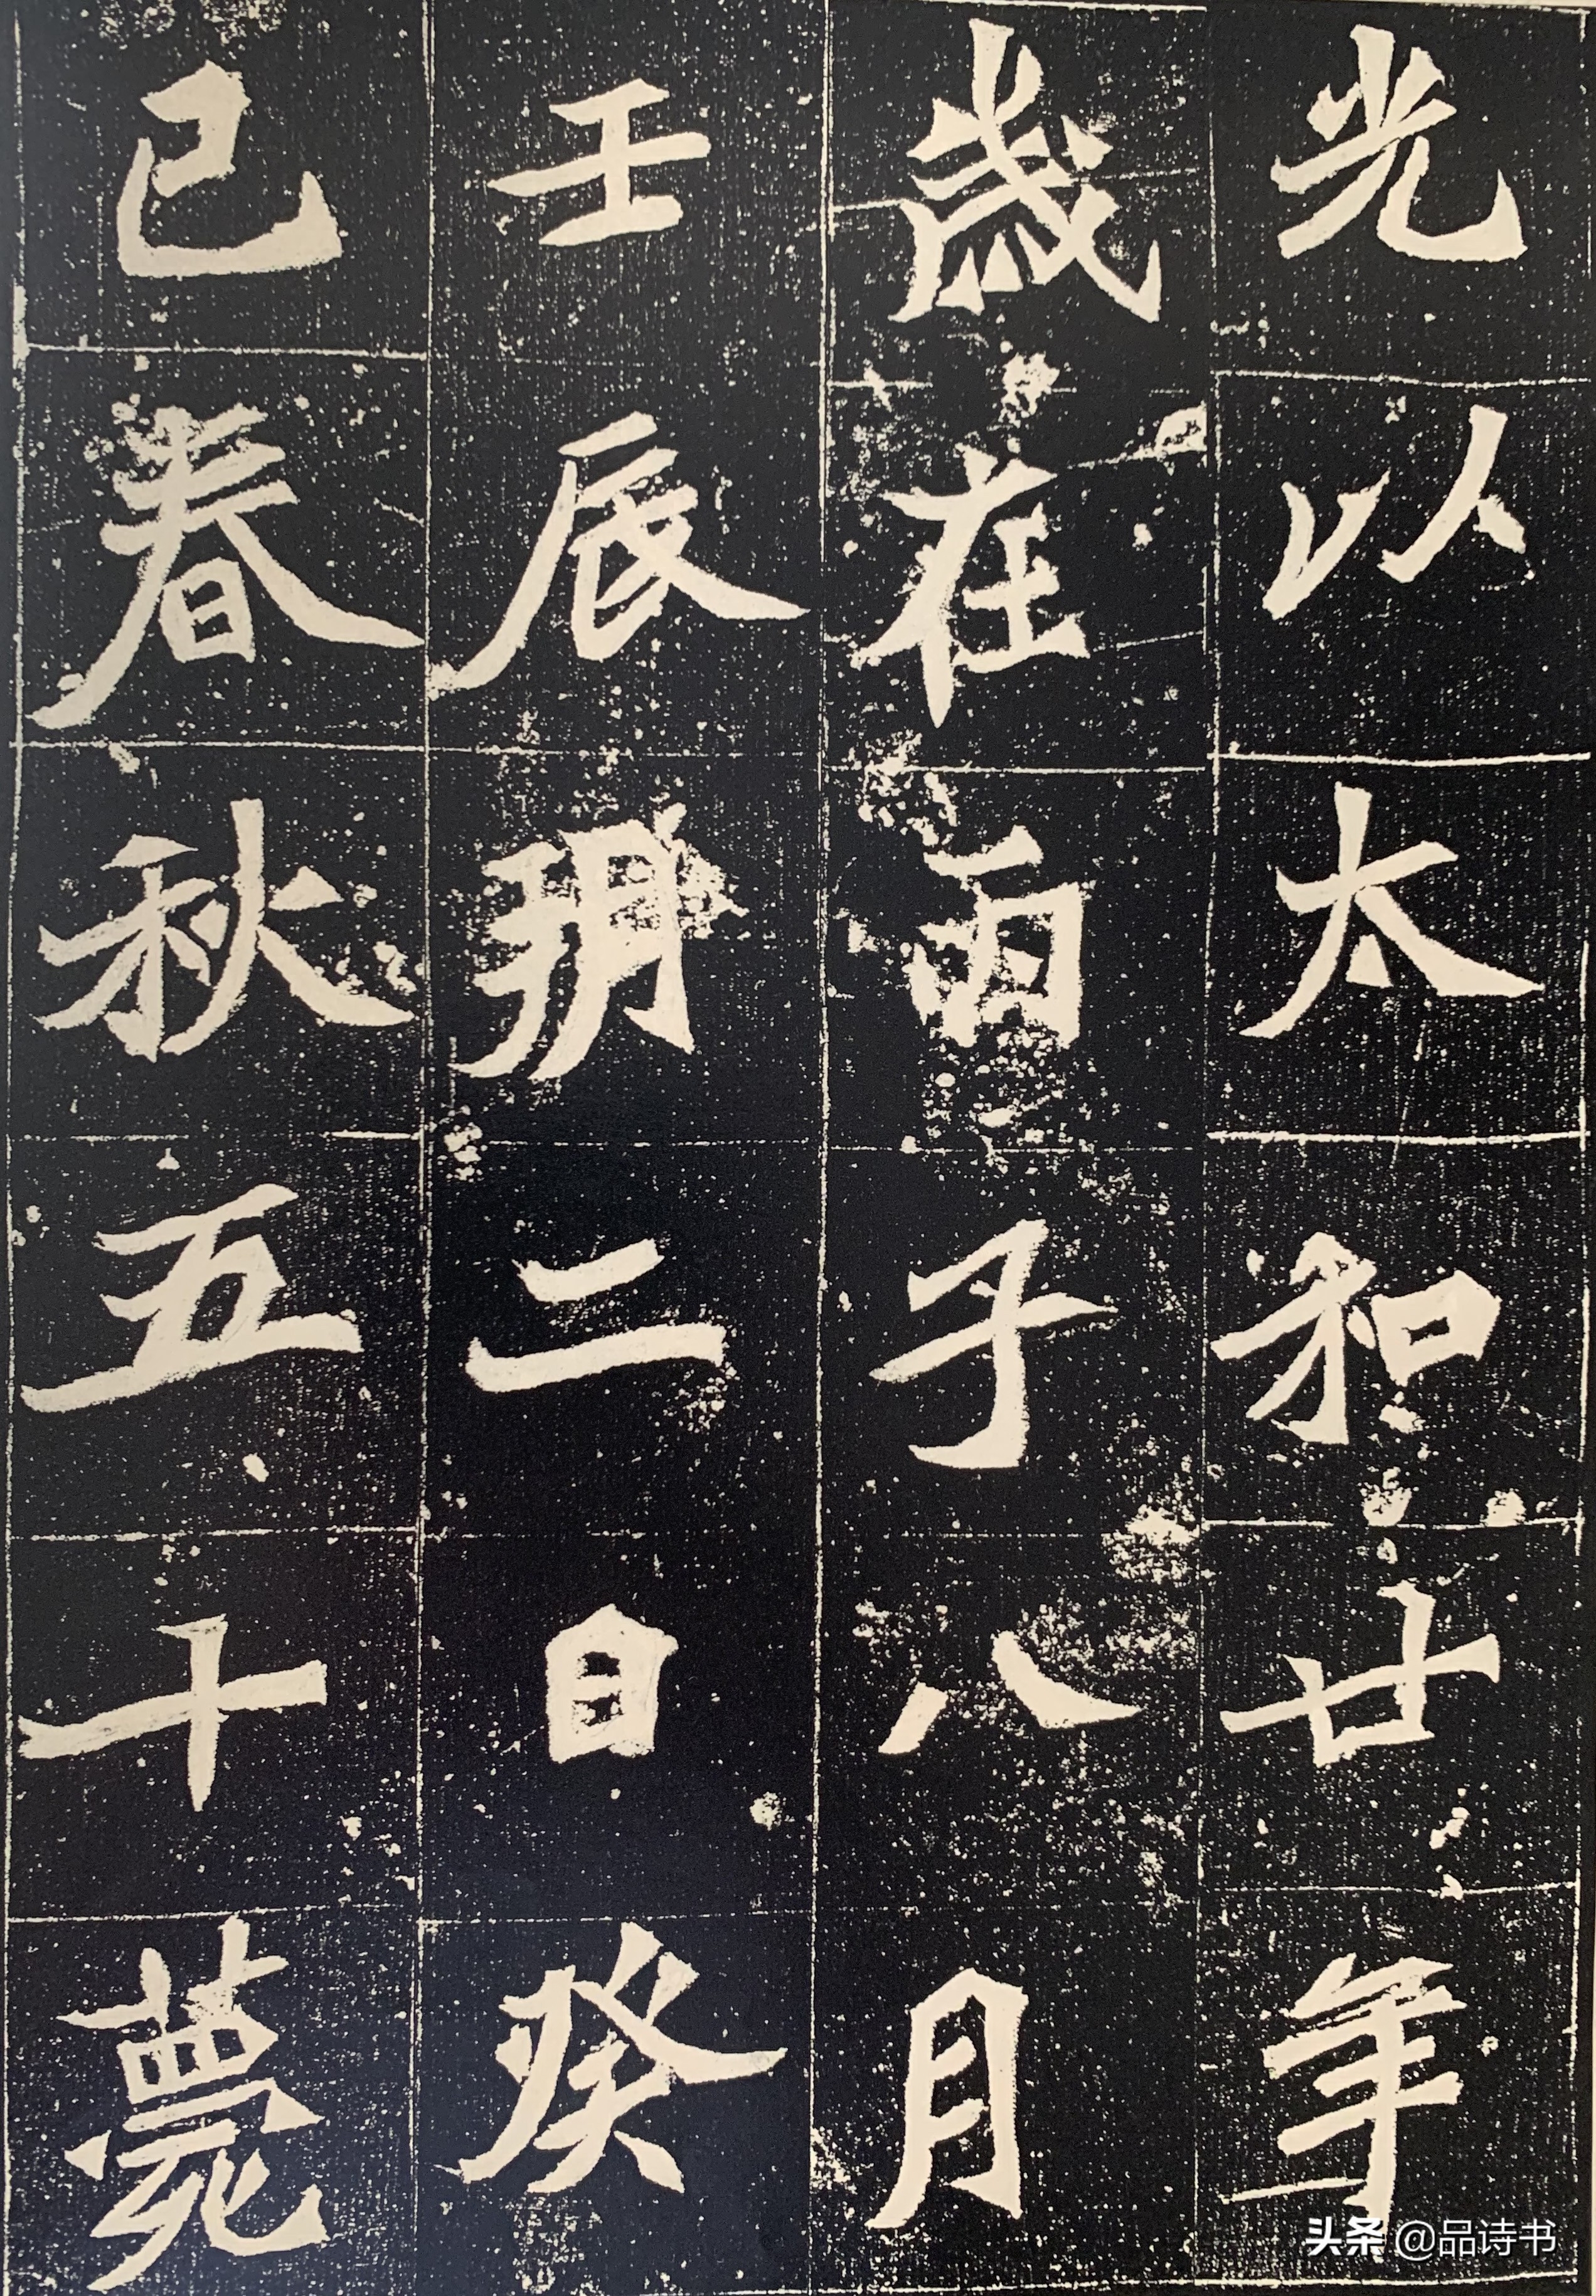 光以太和廿年
歲在丙子八月
壬辰朔二日癸
巳春秋五十薨
头条 @品诗书